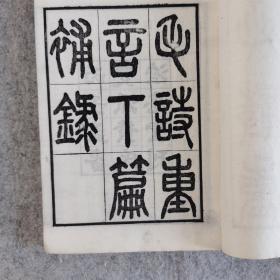 毛詩重
言下篇
補錄